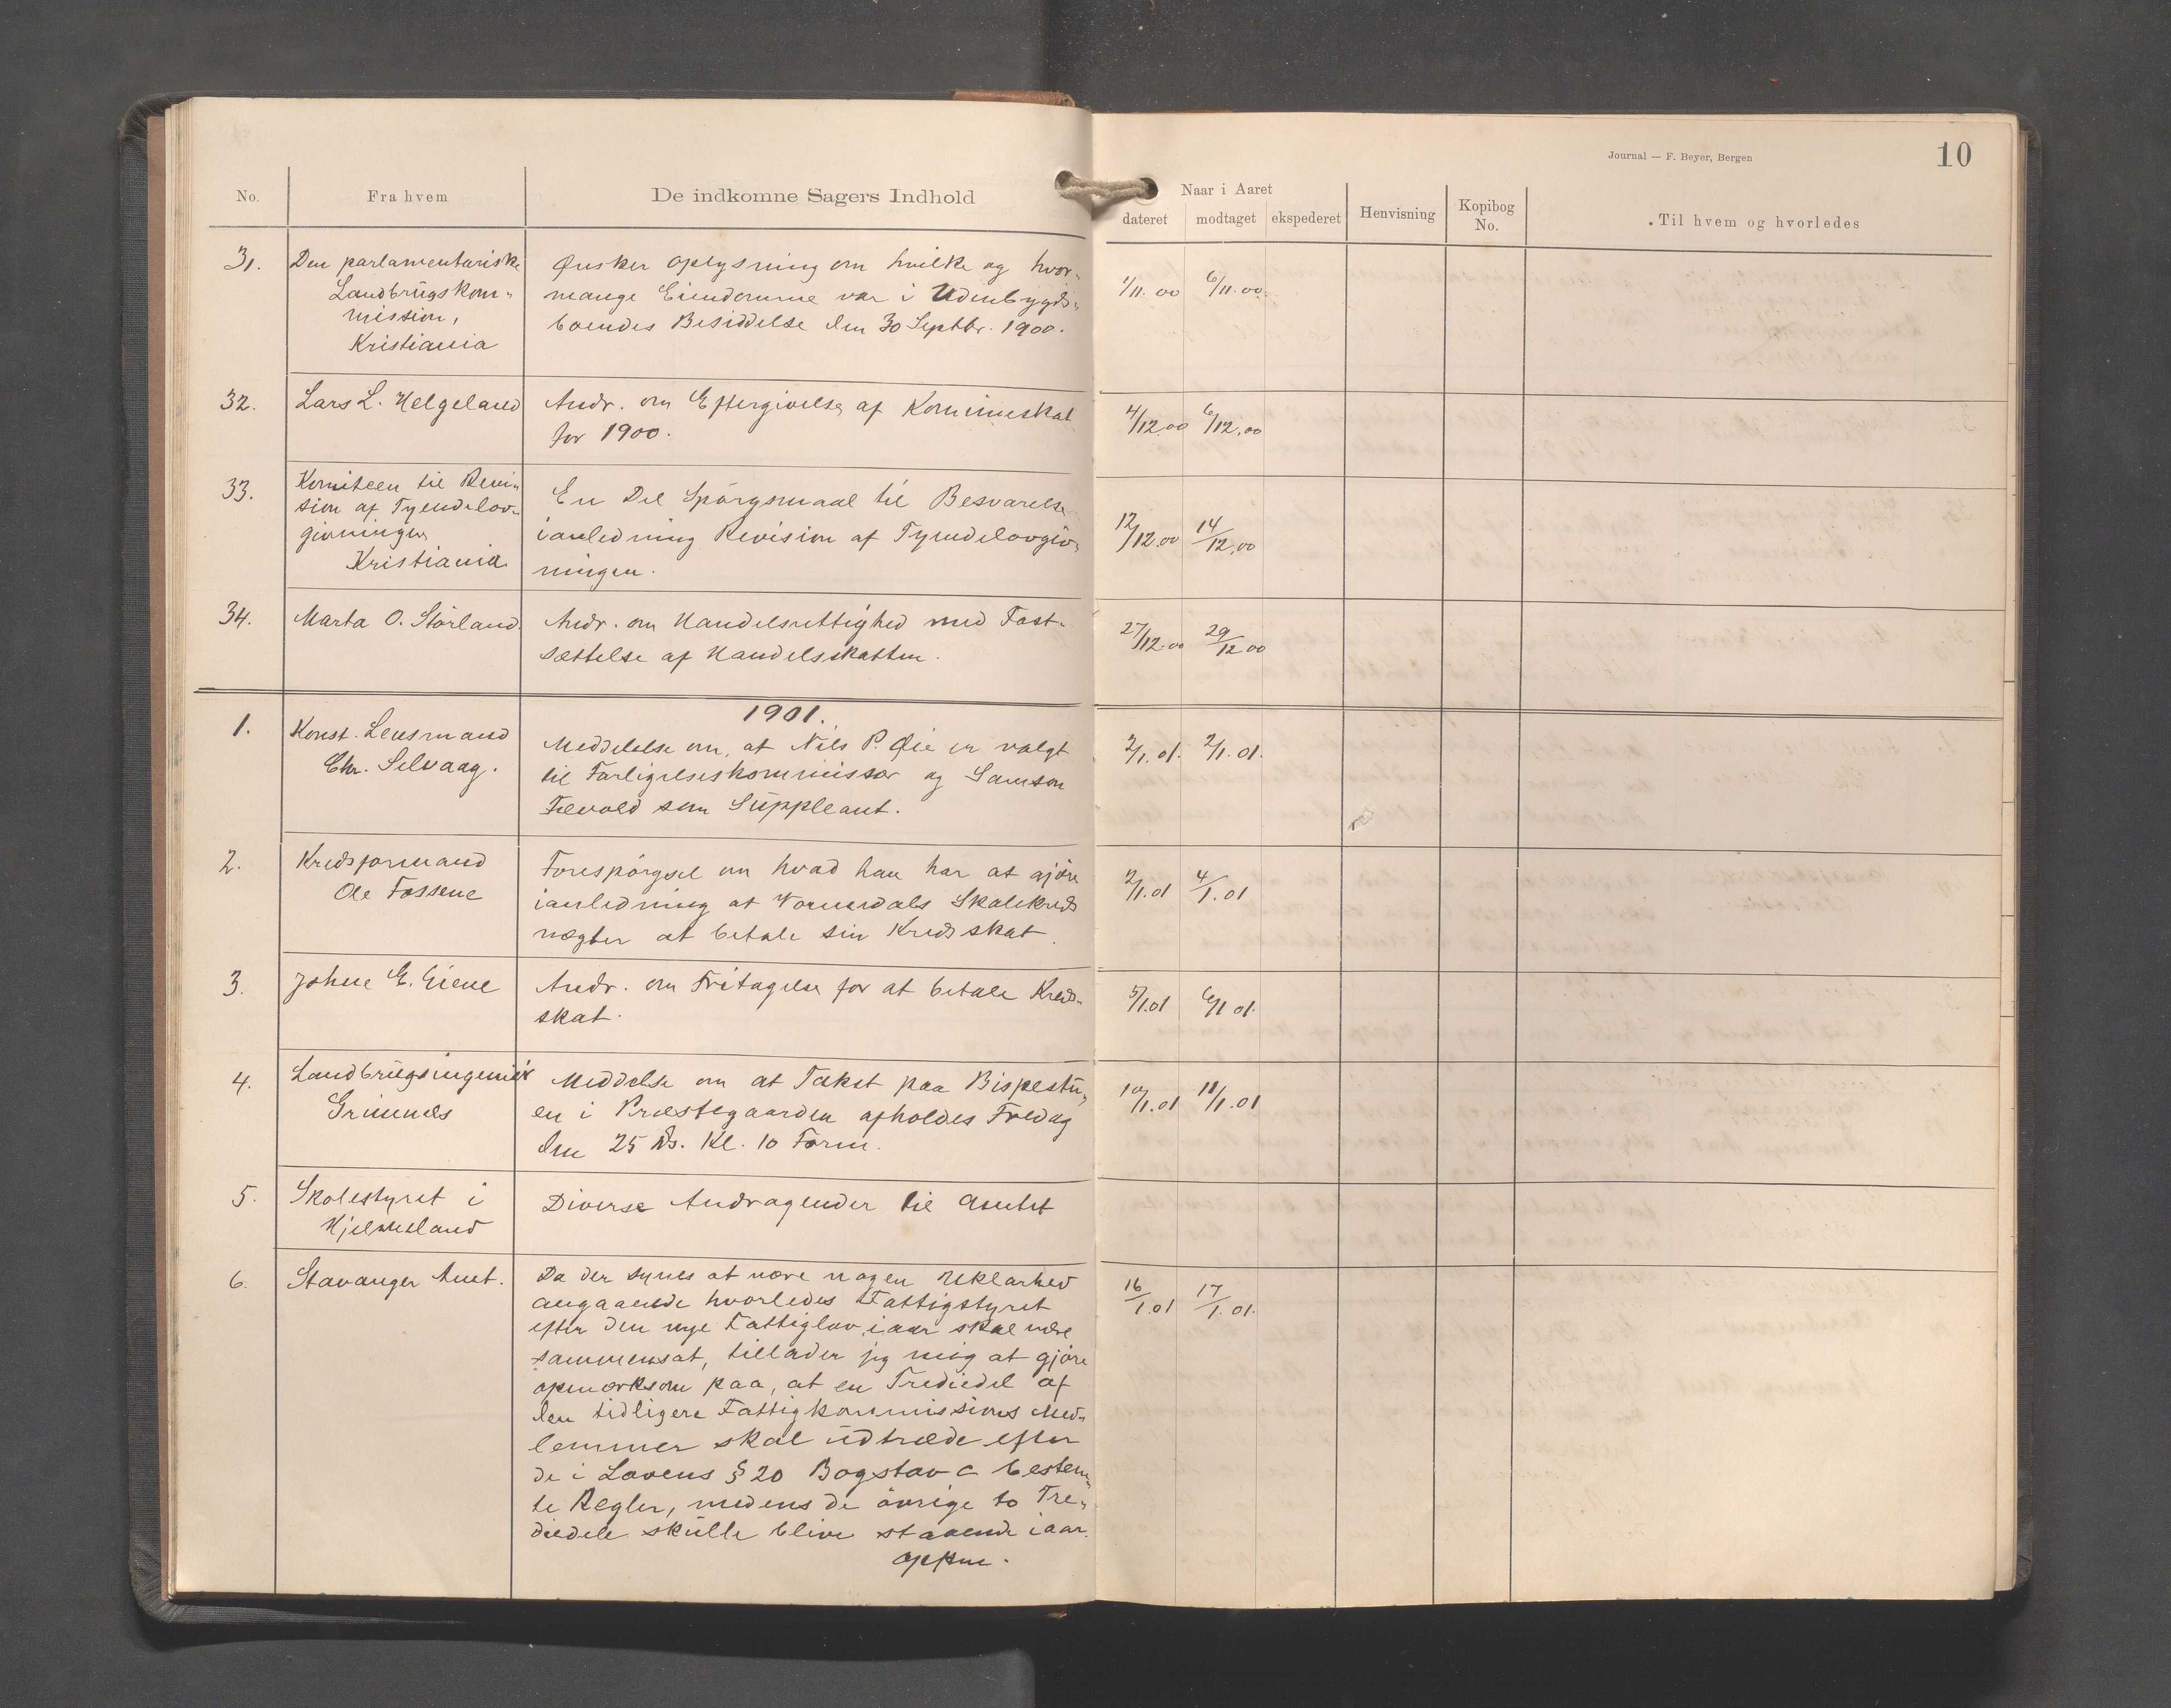 Journal — F. Beyer, Bergen
10
No.
Fra hvem
De indkomne Sagers Indhold
Naar i Aaret
dateret
modtaget
ekspederet
Henvisning
Kopibog
No.
Til hvem og hvorledes
31.
Den parlamentariske
Landbrugskom-
mission,
Kristiania
Ønsker Oplysning om hvilke og hvor-
mange Eiendomme var i Udenbygds-
boendes Besiddelse den 30 Septbr. 1900.
1/11.00
6/11.00.
32.
Lars L. Helgeland
Andr. om Eftergivelse af Kommuneskat
for 1900.
4/12.00
6/12.00
33.
Komiteen til Revi-
sion af Tyendelov-
givningen
Kristiania
En Del Spørgsmaal til Besvarelse
ianledning Revision af Tyendelovgiv-
ningen.
12/12.00
14/12.00
34.
Marta O. Størland.
Andr. om Handelsrettighed med Fast-
sættelse af Handelsskatten.
27/12.00
29/12 00
1901.
1.
Konst. Lensmand
Chr. Selvaag.
Meddelelse om, at Nils P. Øie er valgt
til Forligelseskommissær og Samson
som Suppleant.
2/1.01.
2/1.01.
2.
Kredsformand
Ole Fossene
Forespørgsel om hvad han har at gjøre
ianledning at Vormedals Skolekreds
nægter at betale sin Kredsskat.
2/1.01
4/1.01
3.
Johne E. Eiene
Andr. om Fritagelse for at betale Kreds-
skat.
5/1.01
6/1 01.
4.
Landbrugsingeniør
Grimnes
Meddelse om at Takst paa Bispestu-
en i Præstegaarden afholdes Fredag
den 25 ds. Kl. 10 Form.
10/1.01
11/1.01
5.
Skolestyret i
Hjelmeland
Diverse Andragender til Amtet
6.
Stavanger Amt.
Da der synes at være nogen Uklarhed
angaaende hvorledes Fattigstyret
efter den nye Fattiglov iaar skal være
sammensat, tillader jeg mig at gjøre
opmærksom paa, at en Trediedel af
den tidligere Fattigkommissions Med-
lemmer skal udtræde efter
de i Lovens § 20 Bogstav c bestem-
te Regler, medens de øvrige to Tre-
diedele skulle blive staaende iaar.
16/1.01
17/1.01.